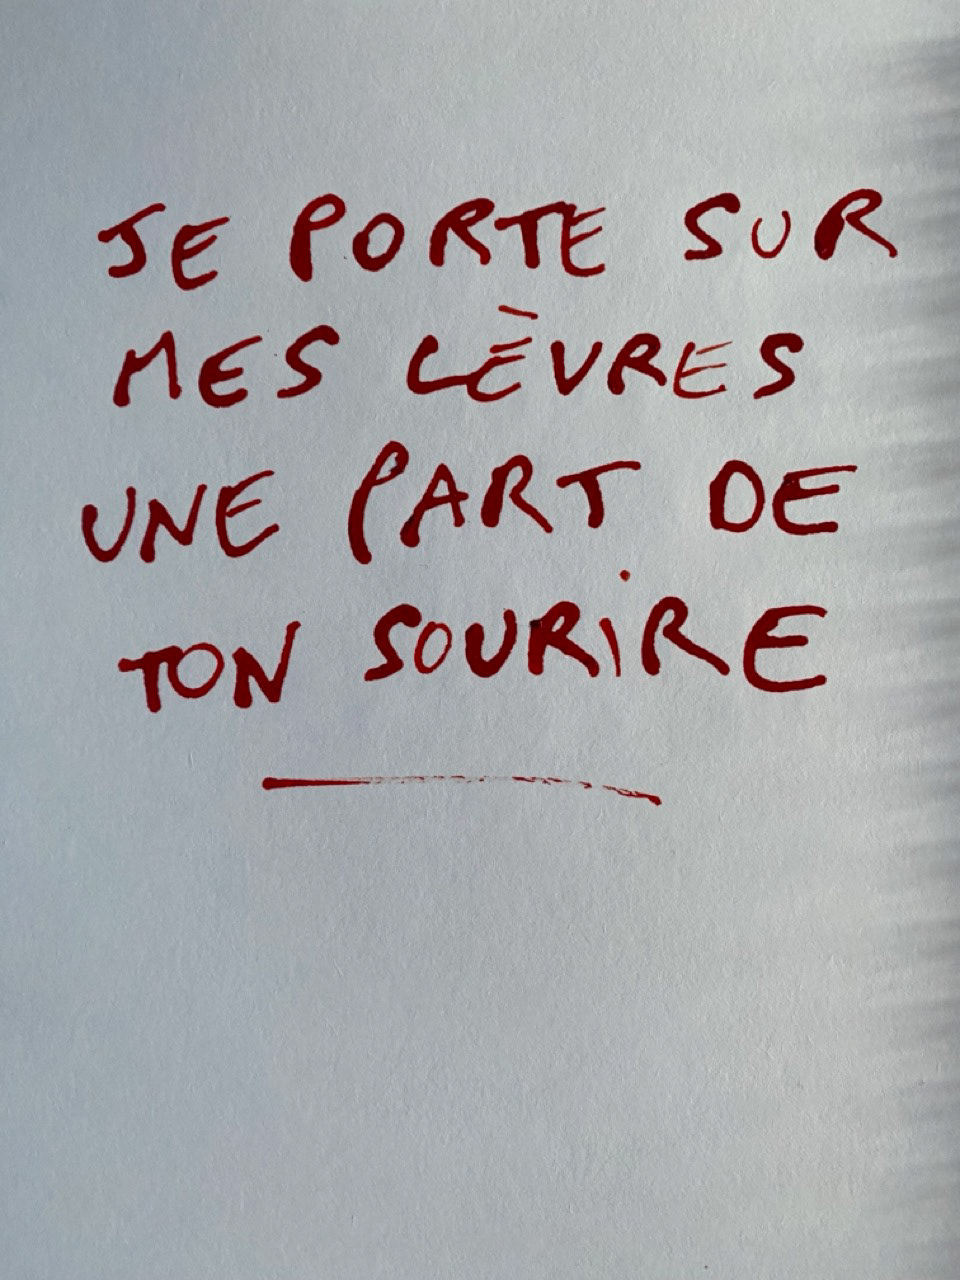 JE PORTE SUR
MES LÈVRES
UNE PART DE
TON SOURiRE